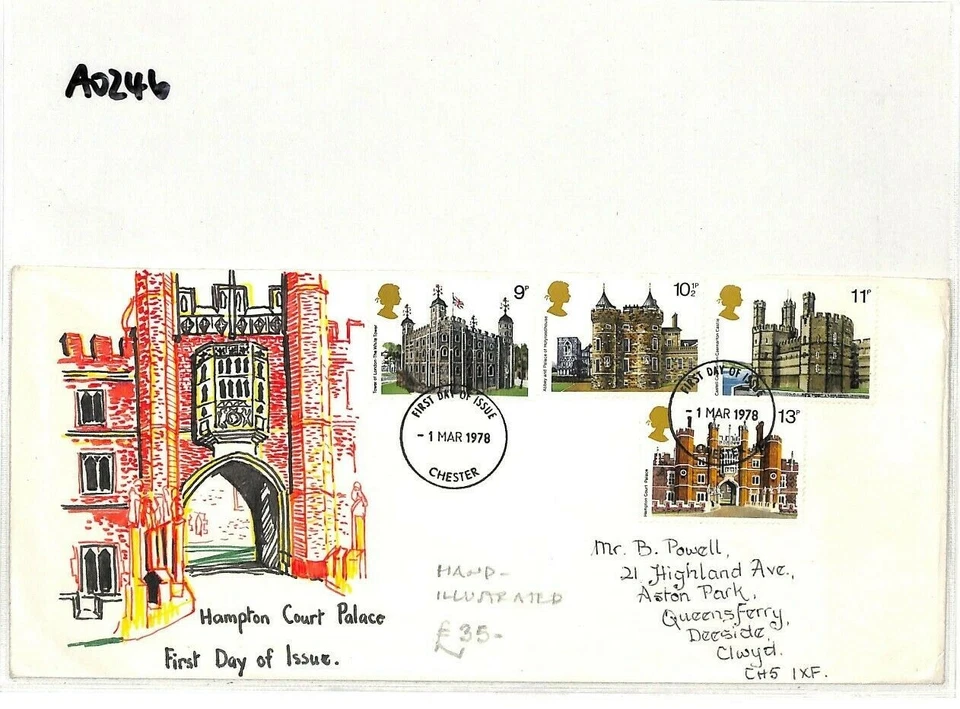 A0246
9P
Tower of London-The White Tower
10½P
Abbey and Palace of Holyroodhouse
11P
Castell Caernarfon/Caernarfon Castle
FIRST DAY OF ISSUE
- 1 MAR 1978
CHESTER
FIRST DAY OF ISSUE
- 1 MAR 1978
CHESTER
13P
Hampton Court Palace
Mr. B. Powell,
21 Highland Ave.,
Aston Park,
Queensferry,
Deeside,
Clwyd.
CH5 1XF.
HAND-
ILLUSTRATED
£35-
Hampton Court Palace
First Day of Issue.